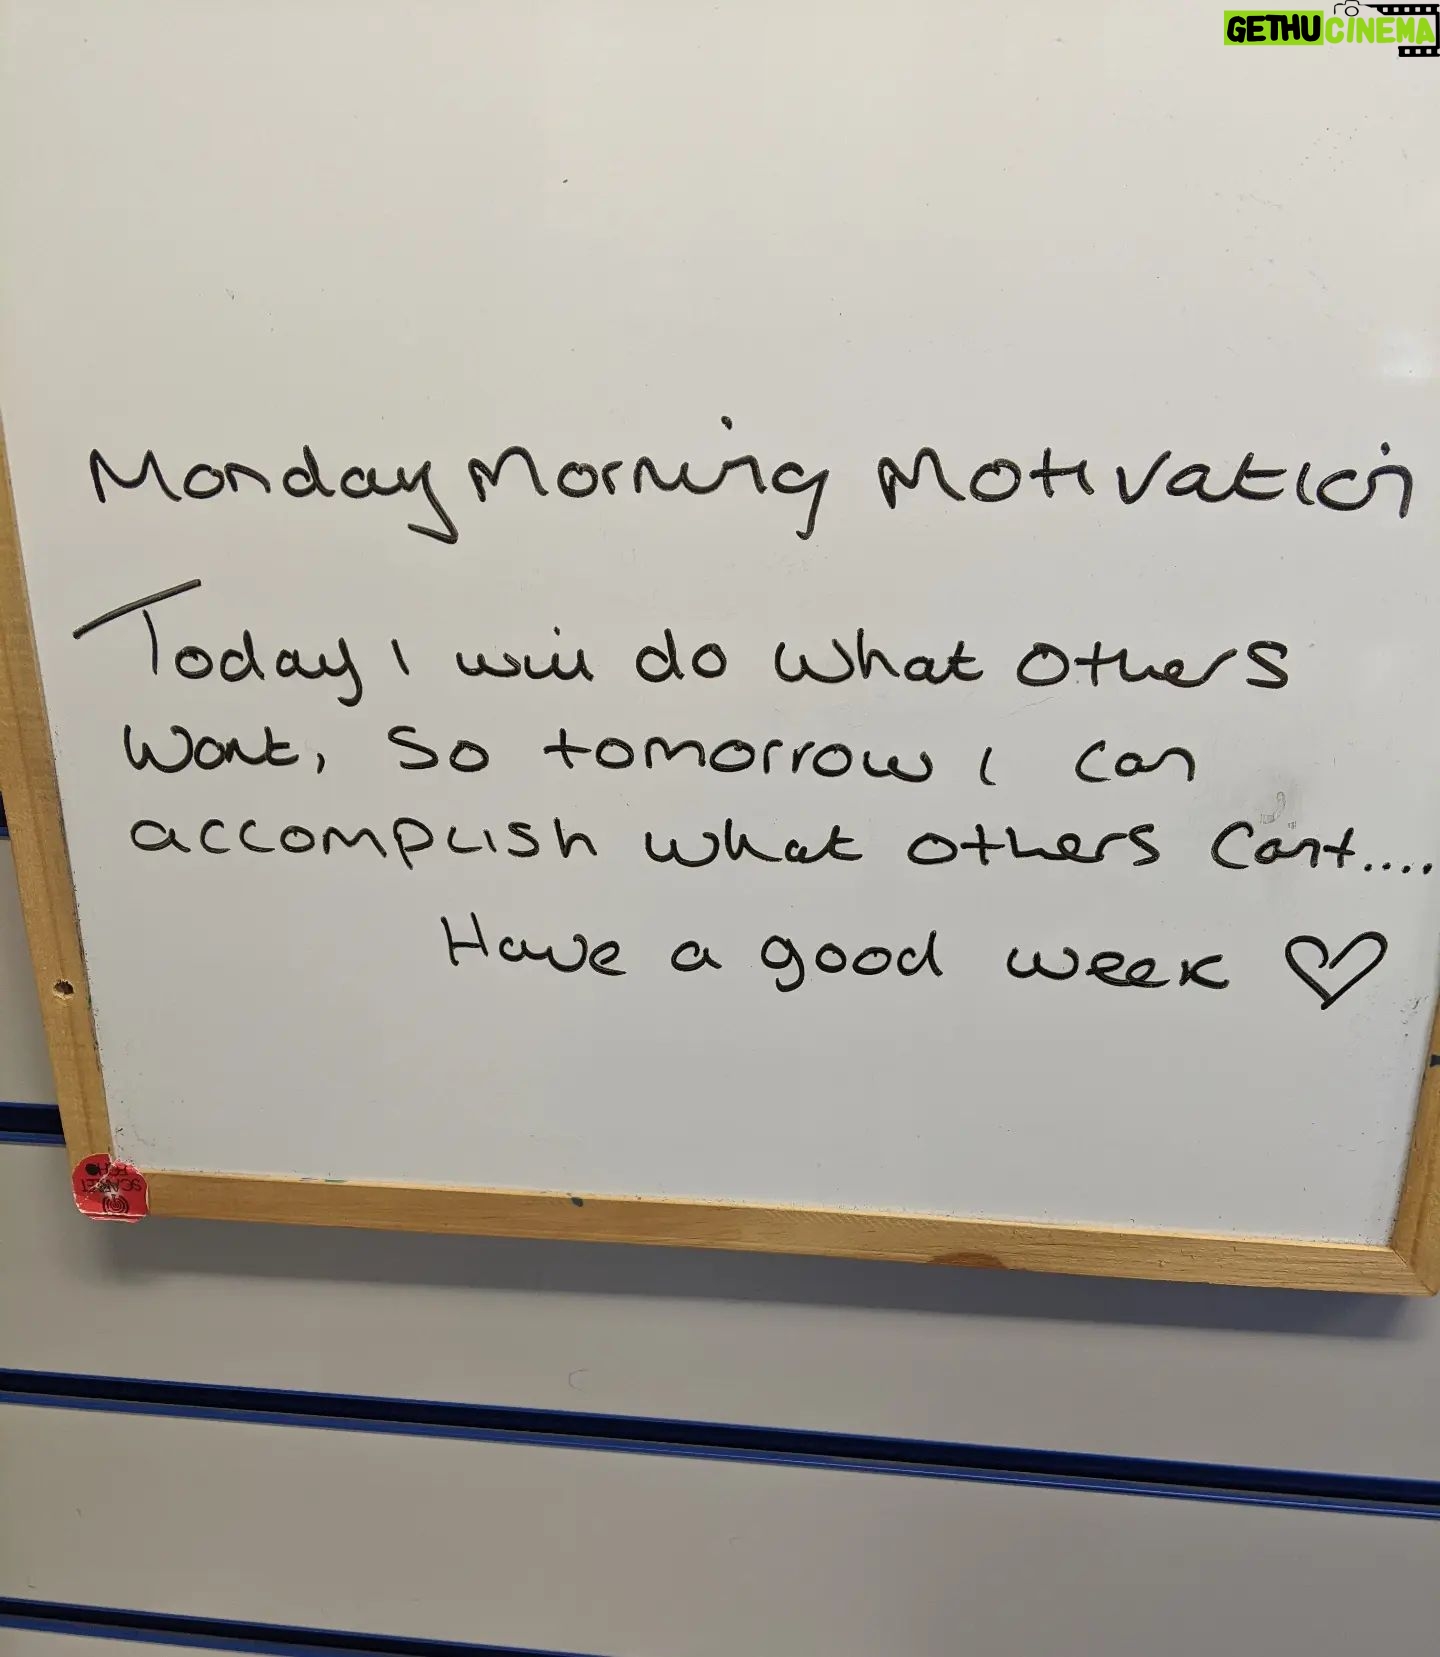 GETHUCINEMA
Monday Morning Motivation
Today I will do what others
wont, so tomorrow I can
accomplish what others cant....
Have a good week ♡
SCARLET
ECHO